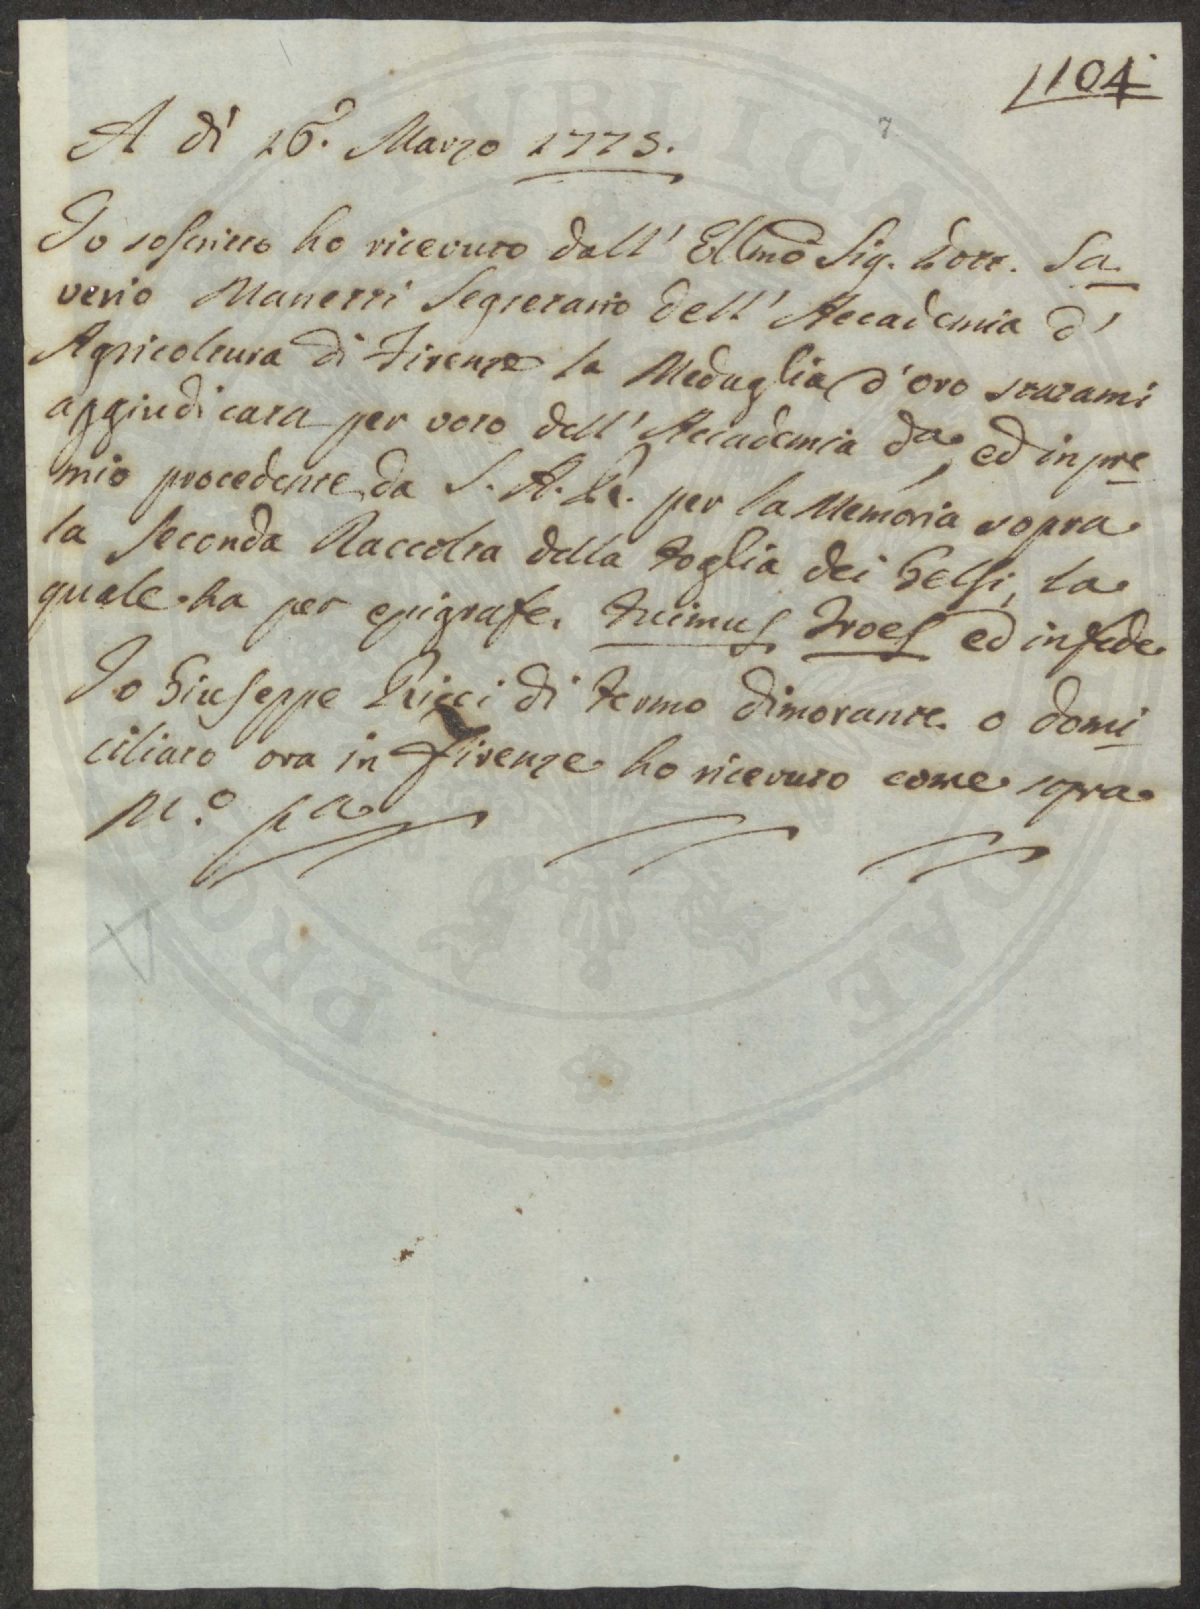 104
7
A dì 26. Marzo 1775.
Io soscritto ho ricevuto dall' Ill.mo Sig. Dott. Sa-
verio Manetti Segretario dell' Accademia d'
Agricoltura di Firenze la Medaglia d'oro statami
aggiudicata per voto dell' Accademia da, ed in pre-
mio procedente da S. A. R. per la Memoria sopra
la seconda Raccolta della foglia dei Gelsi, la
quale ha per epigrafe. Fuimus Troes ed in fede
Io Giuseppe Ricci di Fermo dimorante o domi-
ciliato ora in Firenze ho ricevuto come sopra
M.o pa
PUBLICAE
PRO